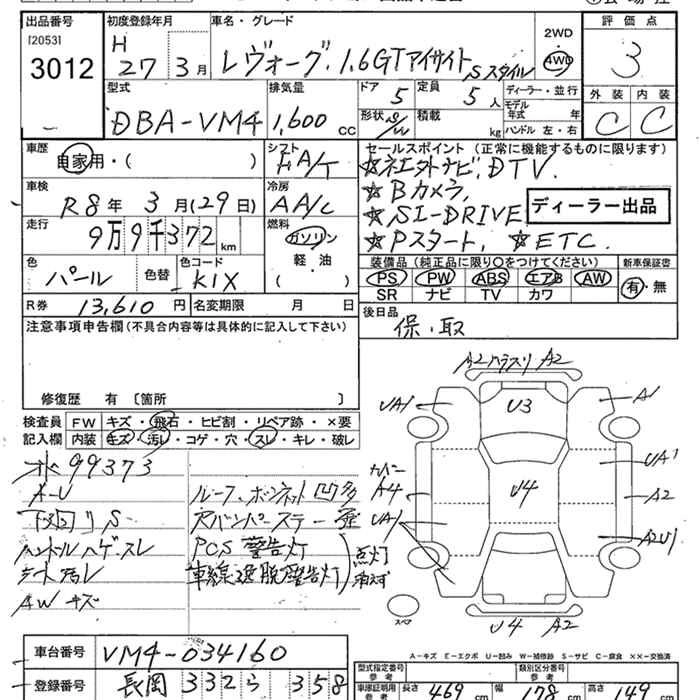 出品番号 初度登録年月 車名・グレード 2WD 評価点
[2053] H
3012 27年 3月 レヴォーグ 1.6GTアイサイト Sスタイル 4WD 3
型式 排気量 ドア 5 定員 5人 ディーラー・並行 外装 内装
DBA-VM4 1,600cc 形状 S/W 積載 kg モデル年式 年 C C
ハンドル 左・右
車歴 シフト セールスポイント (正常に機能するものに限ります)
自家用・( ) FA/T ☆ネエ外ナビ, DTV.
車検 冷房 ☆Bカメラ,
R8年 3月(29日) AA/C ☆SI-DRIVE ディーラー出品
走行 燃料 ☆Pスタート, ☆ETC.
9万9千372km ガソリン
軽・油
( )
色 パール 色替 色コード K1X 装備品(純正品に限り○をつけてください) 新車保証書
PS PW ABS エアB AW 有・無
SR ナビ TV カワ
R券 13,610円 名変期限 月 日 後日品
保・取
注意事項申告欄(不具合内容等は具体的に記入して下さい)
修復歴 有 〔箇所 〕
検査員 FW キズ・飛石・ヒビ割・リペア跡・×要
記入欄 内装 キズ・汚レ・コゲ・穴・スレ・キレ・破レ
A2 カラスリ A2
UA1 U3 A1
ナンバー UA'
A4 U4 A2
UA1 A2U1
スペア U4 A2
99373
A-U ルーフ、ボンネット凹多
下回リS
ハンドルハゲ・スレ PCS警告灯 点灯
シート汚レ 車線逸脱警告灯 消えず
AWキズ
A-キズ E-エクボ U-凹ミ W-補修跡 S-サビ C-腐食 ××-交換済
車台番号 VM4-034160 型式指定番号 参考 類別区分番号 参考
登録番号 長岡 332 ら 358 車庫証明用 参考 長さ 469cm 幅 178cm 高さ 149cm